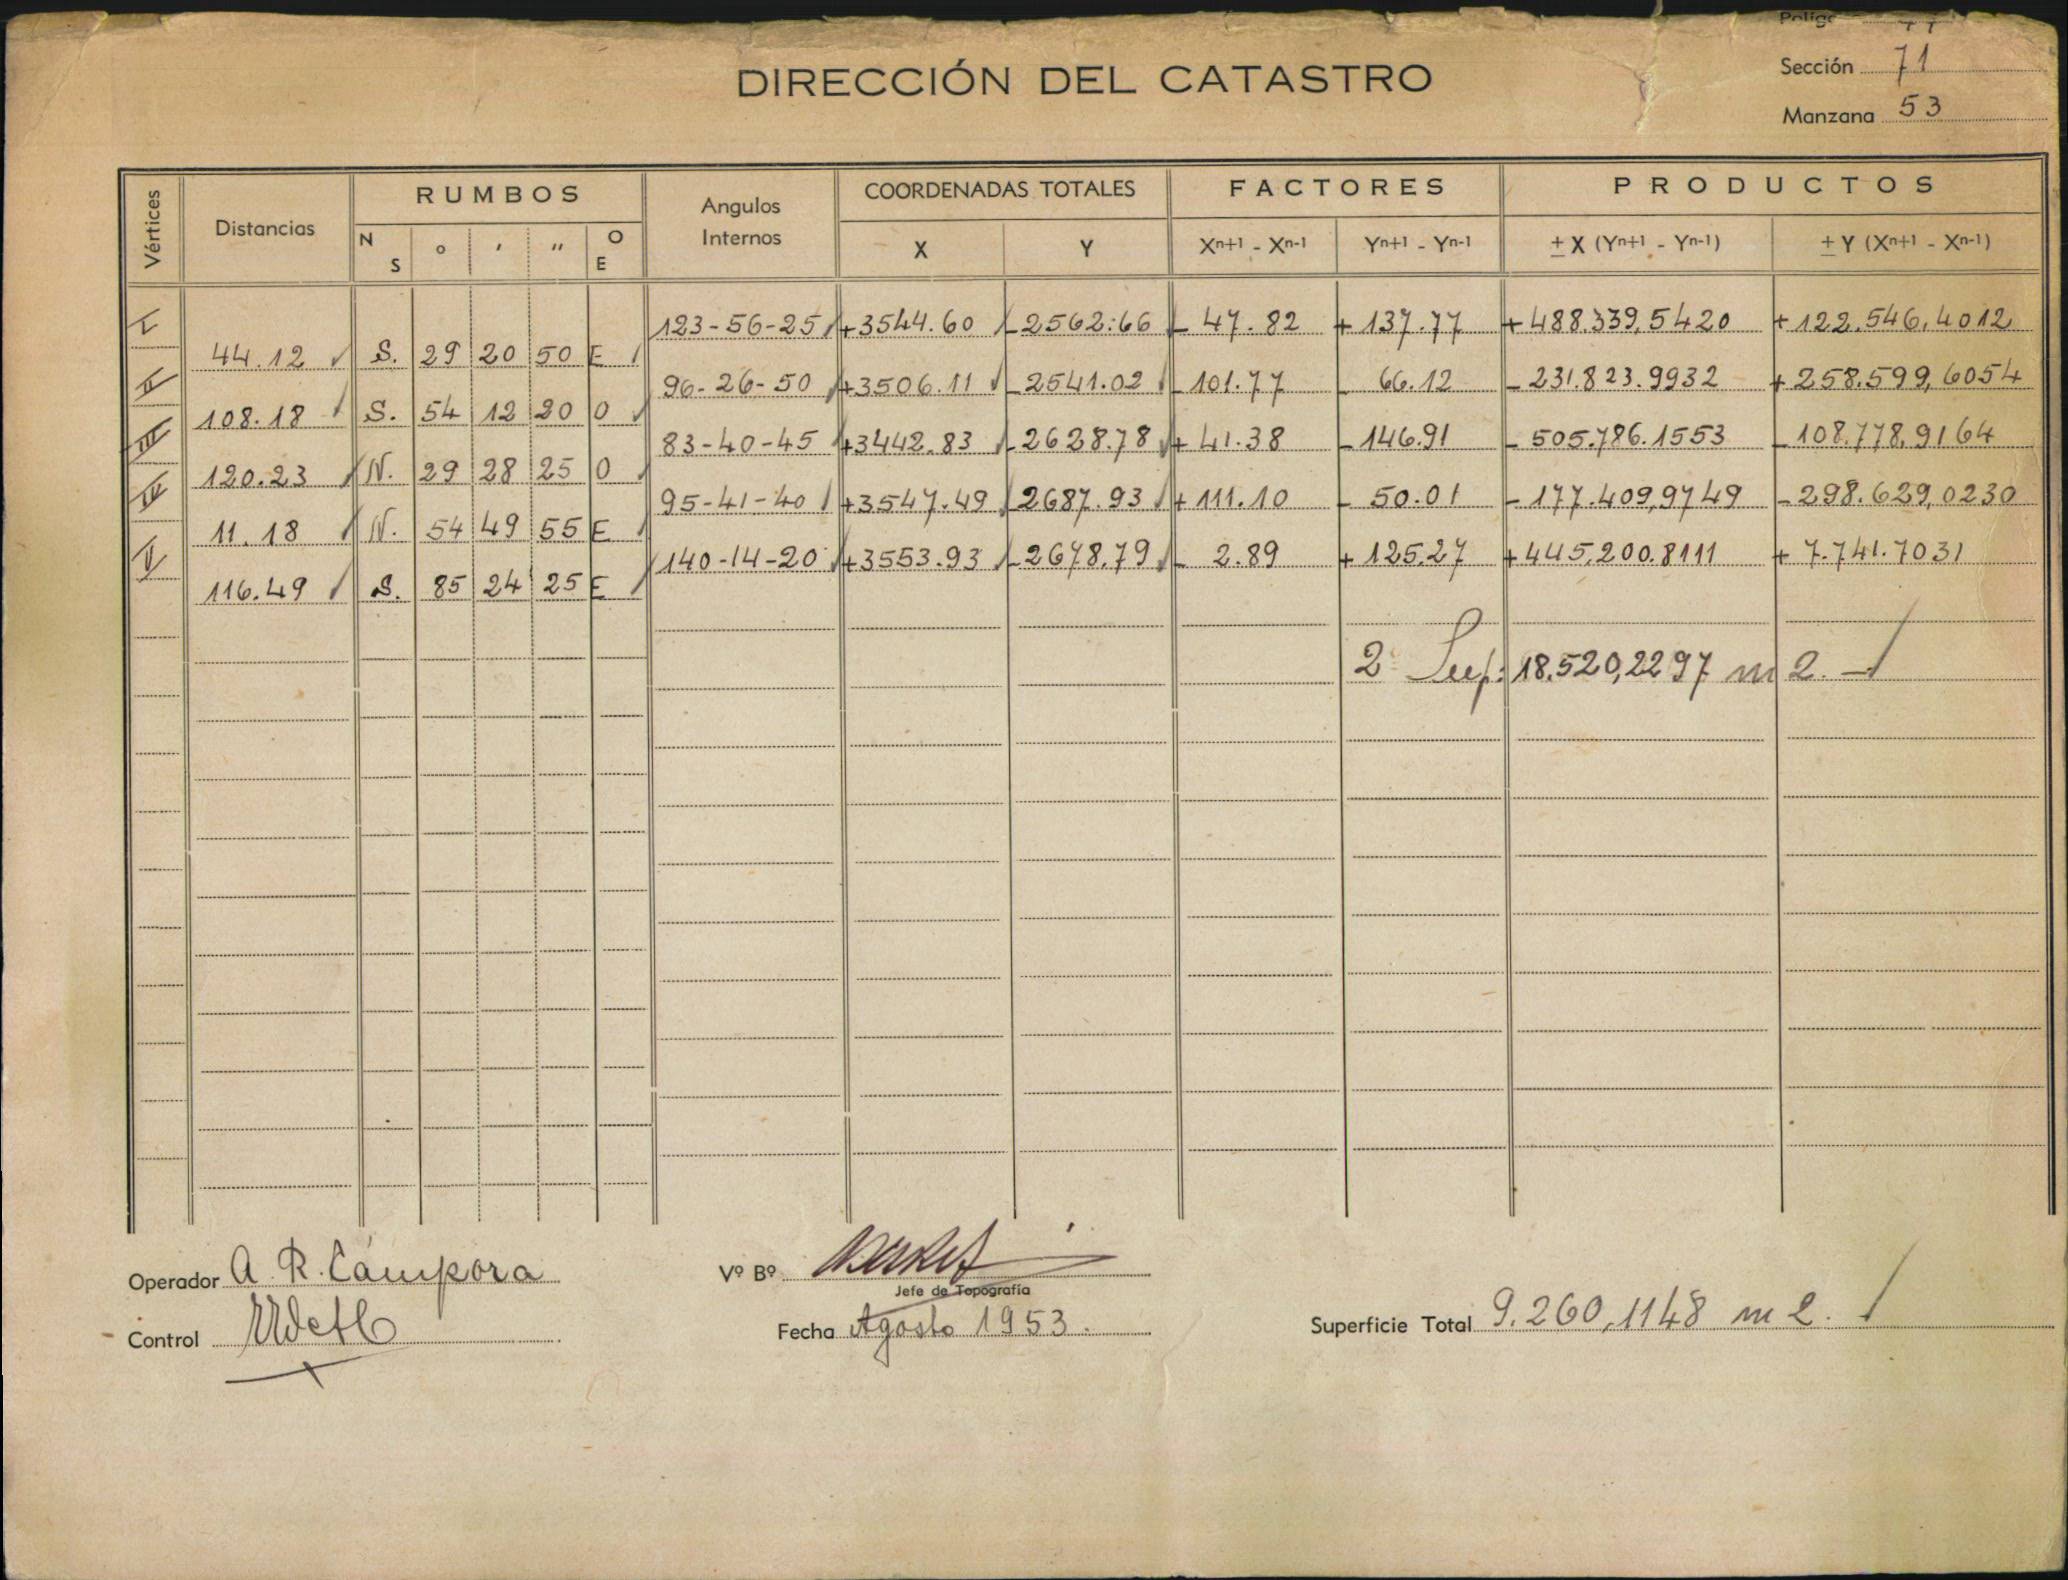 Sección 71
DIRECCIÓN DEL CATASTRO
Manzana 53
Vértices Distancias RUMBOS Angulos Internos COORDENADAS TOTALES FACTORES PRODUCTOS
N S ° ′ ″ O E X Y Xⁿ⁺¹ - Xⁿ⁻¹ Yⁿ⁺¹ - Yⁿ⁻¹ ± X (Yⁿ⁺¹ - Yⁿ⁻¹) ± Y (Xⁿ⁺¹ - Xⁿ⁻¹)
I 123-56-25 +3544.60 -2562.66 - 47.82 + 137.77 +488.339,5420 +122.546,4012
44.12 S. 29 20 50 E
II 96-26-50 +3506.11 -2541.02 -101.77 - 66.12 -231.823.9932 +258.599,6054
108.18 S. 54 12 20 O
III 83-40-45 +3442.83 -2628.78 + 41.38 -146.91 -505.786.1553 -108.778,9164
120.23 N. 29 28 25 O
IV 95-41-40 +3547.49 -2687.93 + 111.10 - 50.01 -177.409,9749 -298.629,0230
11.18 N. 54 49 55 E
V 140-14-20 +3553.93 -2678.79 - 2.89 + 125.27 +445.200.8111 + 7.741.7031
116.49 S. 85 24 25 E
2 Sup: 18.520,2297 m2.
Operador A. R. Cámpora
Vº Bº
Jefe de Topografía
Control
Fecha Agosto 1953.
Superficie Total 9.260,1148 m2.